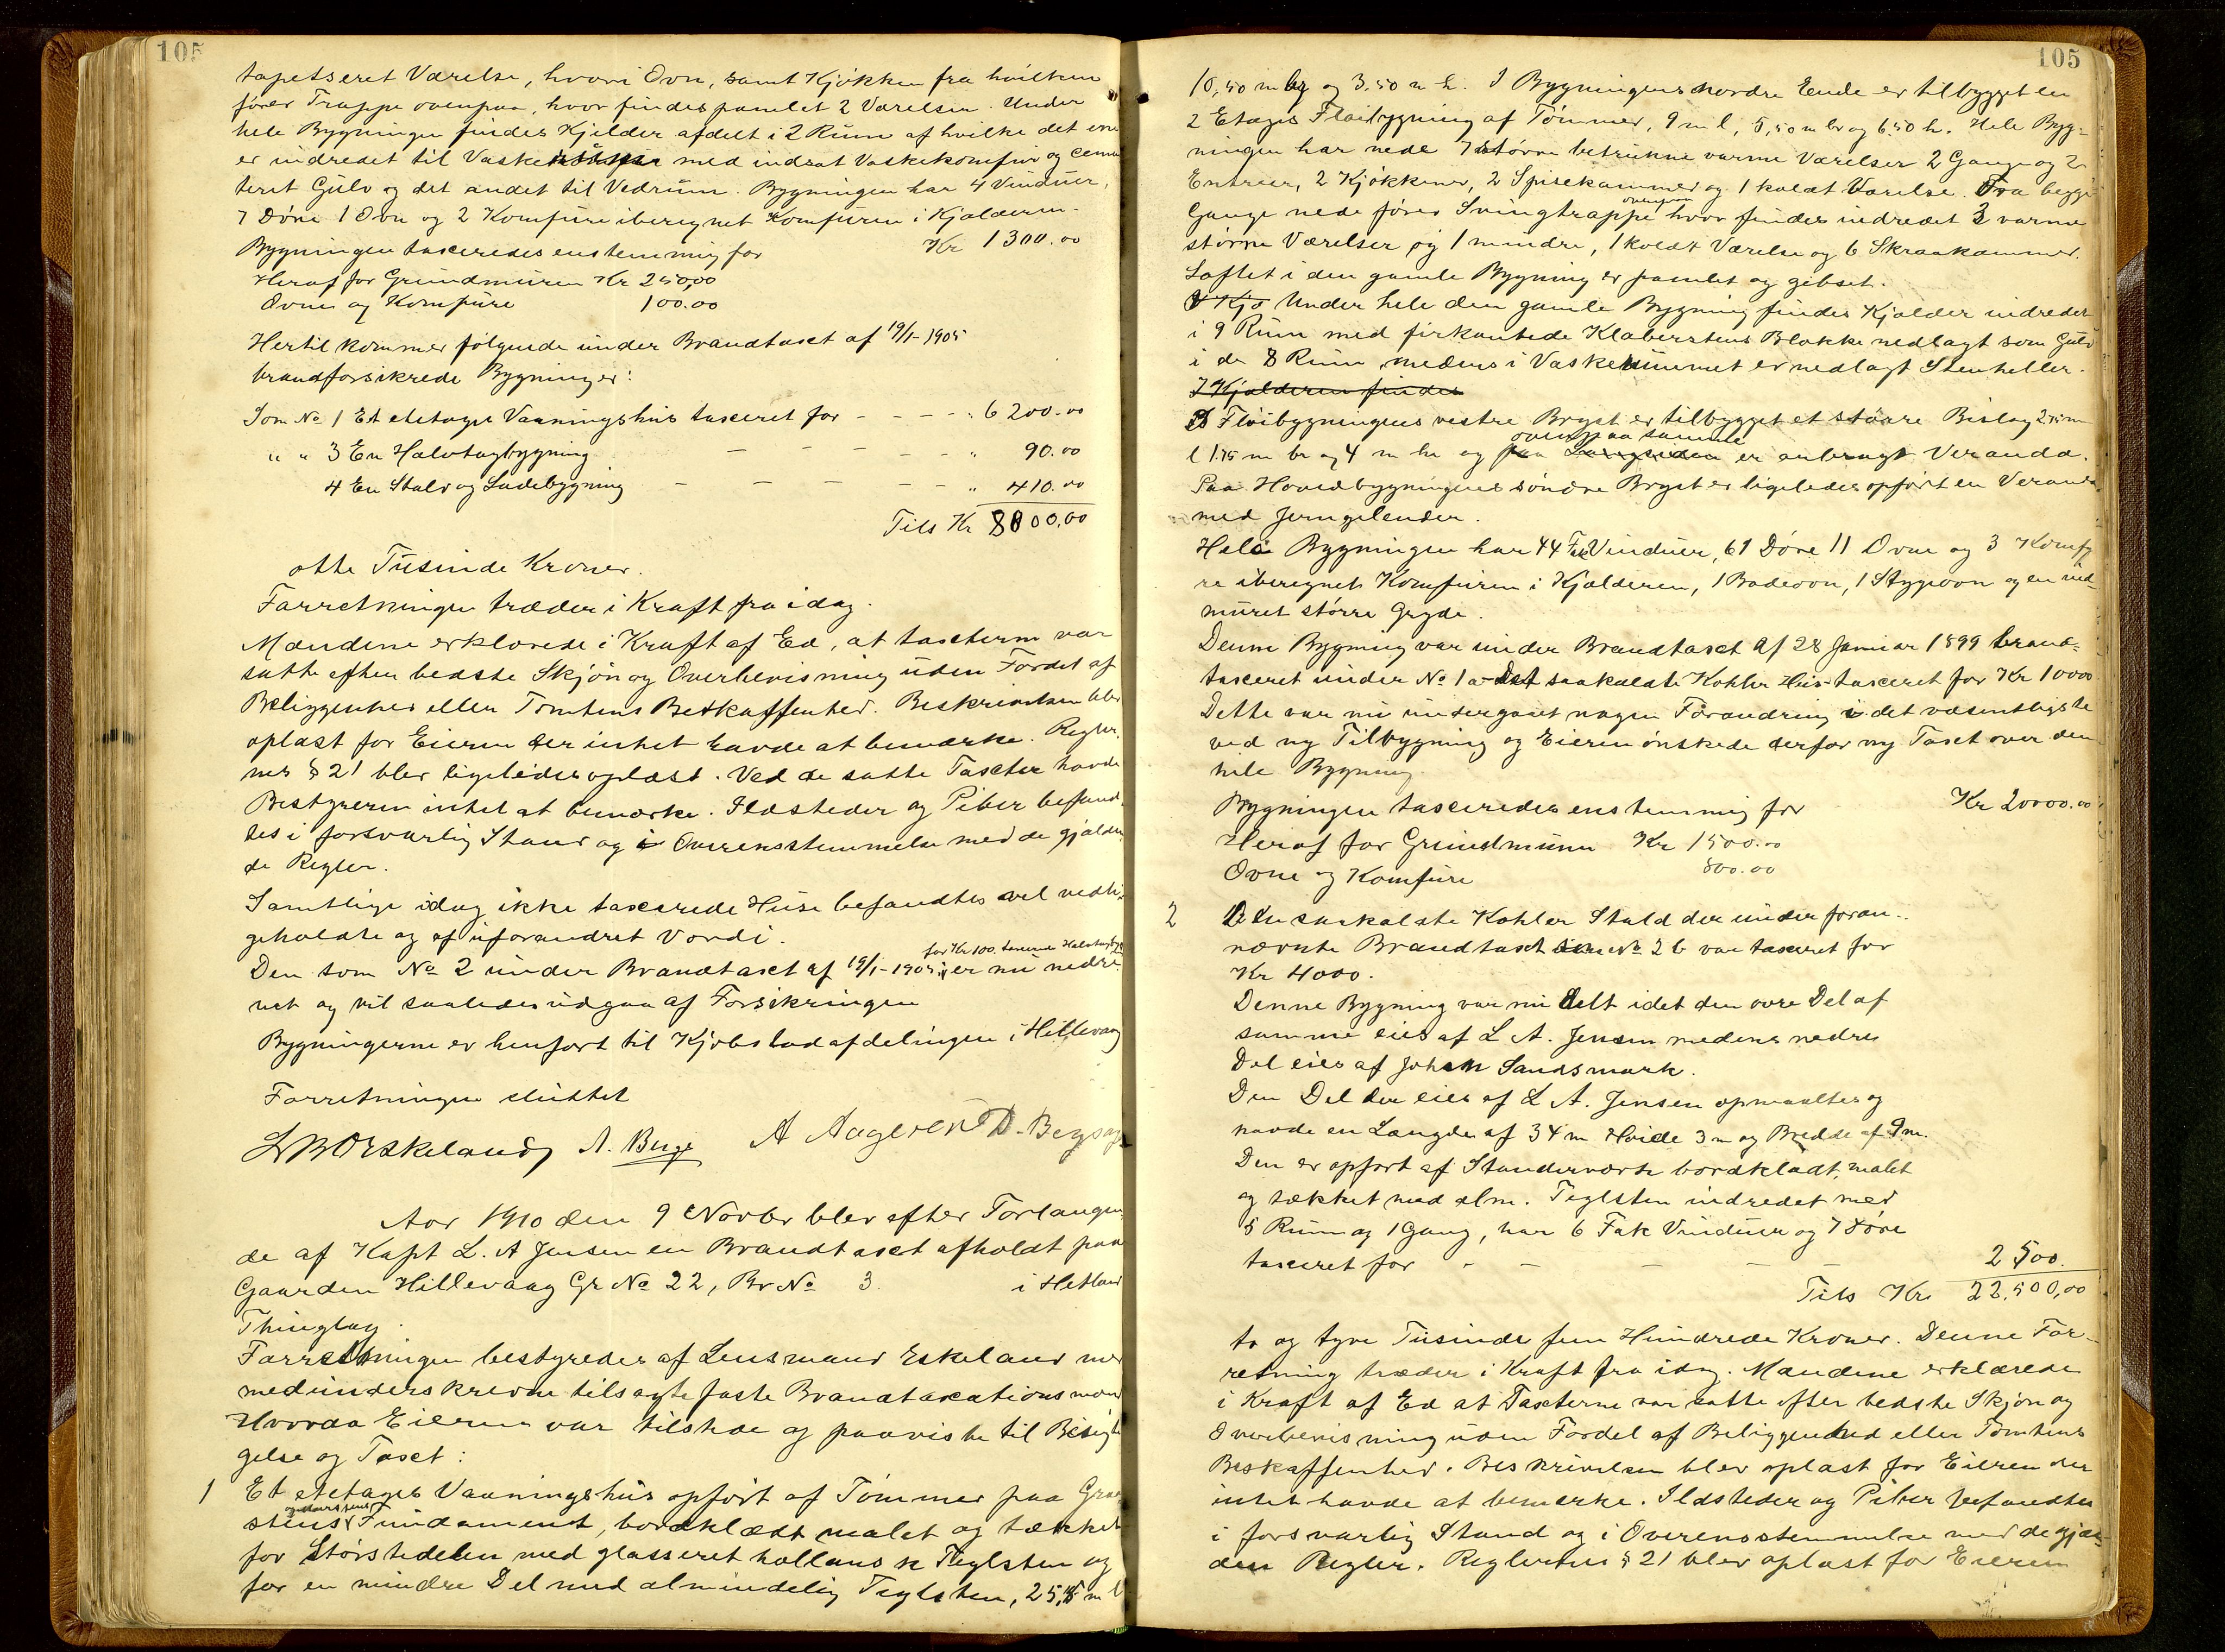 105
tapetseret Værelse, hvori Ovn, samt Kjøkken fra hvilken
fører Trappe ovenpaa, hvor findes panelet 2 Værelser. Under
hele Bygningen findes Kjelder afdelt i 2 Rum af hvilke det ene
er indredet til Vaske med indsat Vaskekomfur og cemen
teret Gulv og det andet til Vedrum. Bygningen har 4 Vinduer,
7 Døre 1 Ovn og 2 Komfure iberegnet Komfuren i Kjælderen.
Bygningen taxeredes enstemmig for Kr 1300.00
Heraf for Grundmuren Kr 250,00
Ovne og Komfure 100.00
Hertil kommer følgende under Brandtaxt af 19/1-1905
brandforsikrede Bygninger:
Som No 1 Et etetages Vaaningshus taxeret for - - - - " 6 200.00
" " 3 En Halvtagbygning - - - - - " 90.00
4 En Stald og Ladebygning - - - - - - " 410.00
Tils Kr 8000,00
otte Tusinde Kroner.
Forretningen træder i Kraft fra idag.
Mændene erklærede i Kraft af Ed, at taxterne var
satte efter bedste Skjøn og Overbevisning uden Fordel af
Beliggenhed eller Tomtens Beskaffenhed. Beskrivelsen blev
oplæst for Eieren der intet havde at bemærke. Regler
nes § 21 blev ligeledes oplæst. Ved de satte Taxter havde
Bestyreren intet at bemærke. Ildsteder og Piber befand
tes i forsvarlig Stand og i Overensstemmelse med de gjælden
de Regler.
Samtlige idag ikke taxerede Huse befandtes vel vedli-
geholdte og af uforandret Værdi.
for Kr 100. taxerede Halvtagbyg
Den som No 2 under Brandtaxt af 19/1-1905 er nu nedre-
vet og vil saaledes udgaa af Forsikringen
Bygningerne er henført til Kjøbstadafdelingen i Hillevaag
Forretningen sluttet
A. Berge
Aar 1910 den 9 Novbr blev efter Forlangen
de af Kapt L. A Jensen en Brandtaxt afholdt paa
Gaarden Hillevaag Gr No 22, Br No 3. i Hetland
Thinglag.
Forretningen bestyredes af Lensmand Eskeland med
medunderskrevne tilsagte faste Brandtaxationsmænd
Hvorda Eieren var tilstede og paaviste til Besigti
gelse og Taxt:
1 Et etetages Vaaningshus opført af Tømmer paa Graa
stens Fundament, bordklædt malet og tækket
for Størstedelen med glasseret hollansk Teglsten og
for en mindre Del med almindelig Teglsten, 25, m l
105
10,50 m br og 3.50 m h. I Bygningens nordre Ende er tilbygget en
2 Etages Fløibygning af Tømmer, 9 m l, 5,50 m br og 6.50 h. Hele Byg-
ningen har nede 7 større betrukne varme Værelser 2 Gange og 2
Entreer, 2 Kjøkkener, 2 Spisekammer og 1 koldt Værelse. Fra begge
ovenpaa
Gange nede fører Svingtrappe hvor findes indredet 3 varme
større Værelser og 1 mindre, 1 koldt Værelse og 6 Skraakammer.
Loftet i den gamle Bygning er panelet og gibset.
Under hele den gamle Bygning findes Kjælder indredet
i 9 Rum med firkantede Kleberstens Blokke nedlagt som Gulv
i de 8 Rum medens i Vaskerummet er nedlagt Stenheller.
I Kjælderen findes
I Fløibygningens vestre Bryst er tilbygget et større Bislag 2.75 m
ovenpaa samme
l 1.75 m br og 4 m h. og paa Langsiden er anbragt Veranda.
Paa Hovedbygningens søndre Bryst er ligeledes opført en Veranda
med Jerngelender.
Hele Bygningen har 44 Fak Vinduer, 61 Døre 11 Ovne og 3 Komfu
re iberegnet Komfuren i Kjælderen, 1 Badeovn, 1 Strygeovn og en ind-
muret større Gryde.
Denne Bygning var under Brandtaxt af 28 Januar 1899 brand-
taxeret under No 1 a Det saakaldte Kohler Hus taxeret for Kr 10000
Dette var nu undergaaet nogen Forandring i det væsentligste
ved ny Tilbygning og Eieren ønskede derfor ny Taxt over den
hele Bygning
Bygningen taxeredes enstemmig for Kr 20000.00
Heraf for Grundmuren Kr 1500.00
Ovne og Komfure 800.00
2 Den saakaldte Kohler Stald der under foran-
nævnte Brandtaxt No 2 b var taxeret for
Kr 4000.
Denne Bygning var nu delt idet den øvre Del af
samme eies af L A. Jensen medens nedre
Del eies af Johan Sandsmark.
Den Del der eies af L A. Jensen opmaaltes og
havde en Længde af 34 m Høide 3 m og Bredde af 9 m.
Den er opført af Standerværk bordklædt, malet
og tækket med alm. Teglsten indredet med
5 Rum og 1 Gang, har 6 Fak Vinduer og 7 Døre
taxeret for - - - - - 2 500.
Tils Kr 22,500,00
to og tyve Tusinde fem Hundrede Kroner. Denne For-
retning træder i Kraft fra idag. Mændene erklærede
i Kraft af Ed at Taxterne var satte efter bedste Skjøn og
Overbevisning uden Fordel af Beliggenhed eller Tomtens
Beskaffenhed. Beskrivelsen blev oplæst for Eieren der
intet havde at bemærke. Ildsteder og Piber befandtes
i forsvarlig Stand og i Overensstemmelse med de gjæl-
den Regler. Reglernes § 21 blev oplæst for Eieren